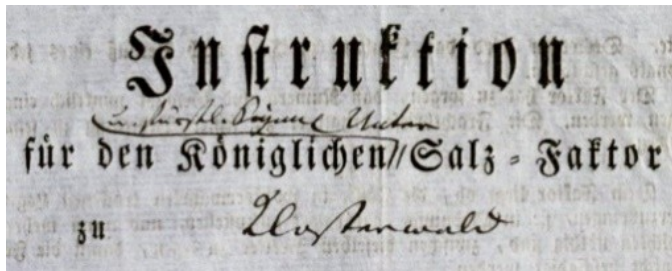 Instruktion
Unter
für den Königlichen // Salz-Faktor
zu Klosterwald